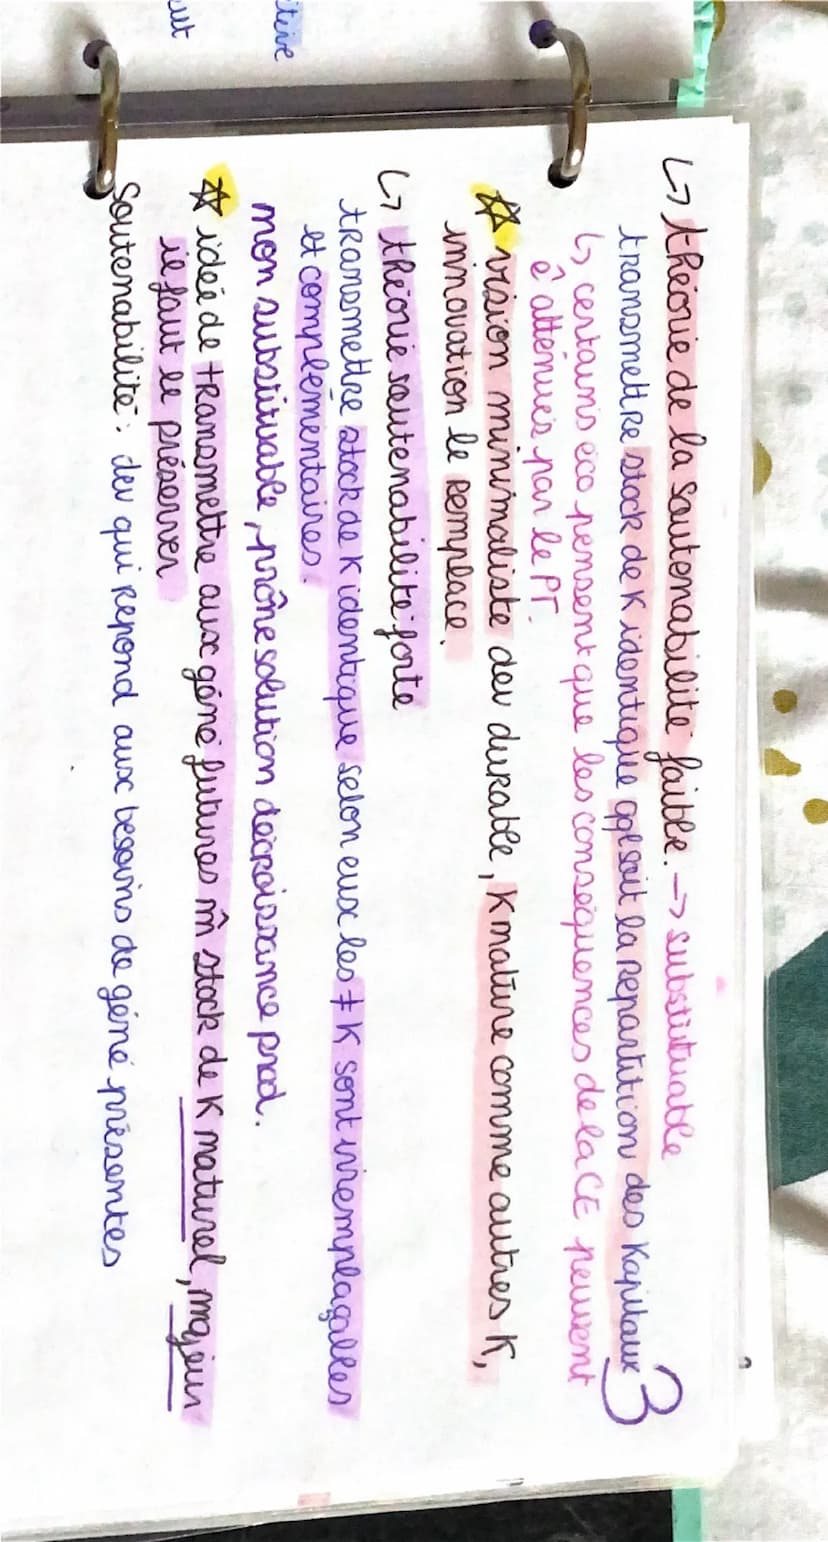 ↳ théorie de la soutenabilité faible. → substituable
transmettre stock de K identique qql soit la répartition des Kapitaux
3
↳ certains éco pensent que les conséquences de la CE peuvent
ê atténués par le PT.
☆ vision minimaliste dev durable, K nature comme autres K,
innovation le remplace.
↳ théorie soutenabilité forte
transmettre stock de K identique selon eux les ≠ K sont irremplaçables
et complémentaires.
non substituable, prône solution décroissance prod.
☆ idée de transmettre aux géné futures m̂ stock de K naturel, majeur
il faut le préserver
Soutenabilité : dev qui répond aux besoins de géné présentes